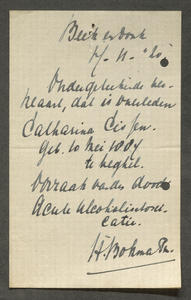 Beek en donk
11/11 '20
Ondergeteekende ver-
klaart, dat is overleden
Catharina Cissen.
geb. 10 Mei 1884
te Veghel.
Oorzaak van den dood
Acute Alcoholintoxi-
catie.
H. Bohma